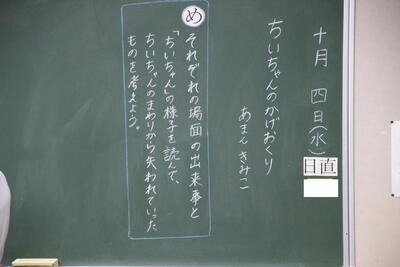 十月 四日(水)
日直
ちいちゃんのかげおくり
あまん きみこ
め
それぞれの場面の出来事と
「ちいちゃん」の様子を読んで、
ちいちゃんのまわりから失われていった
ものを考えよう。